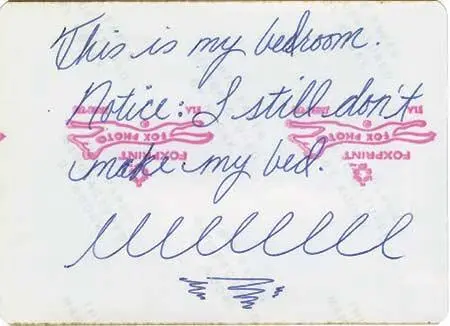 This is my bedroom.
Notice: I still don't
make my bed.
FOX PHOTO
FOX PHOTO
FOXPRINT
FOXPRINT